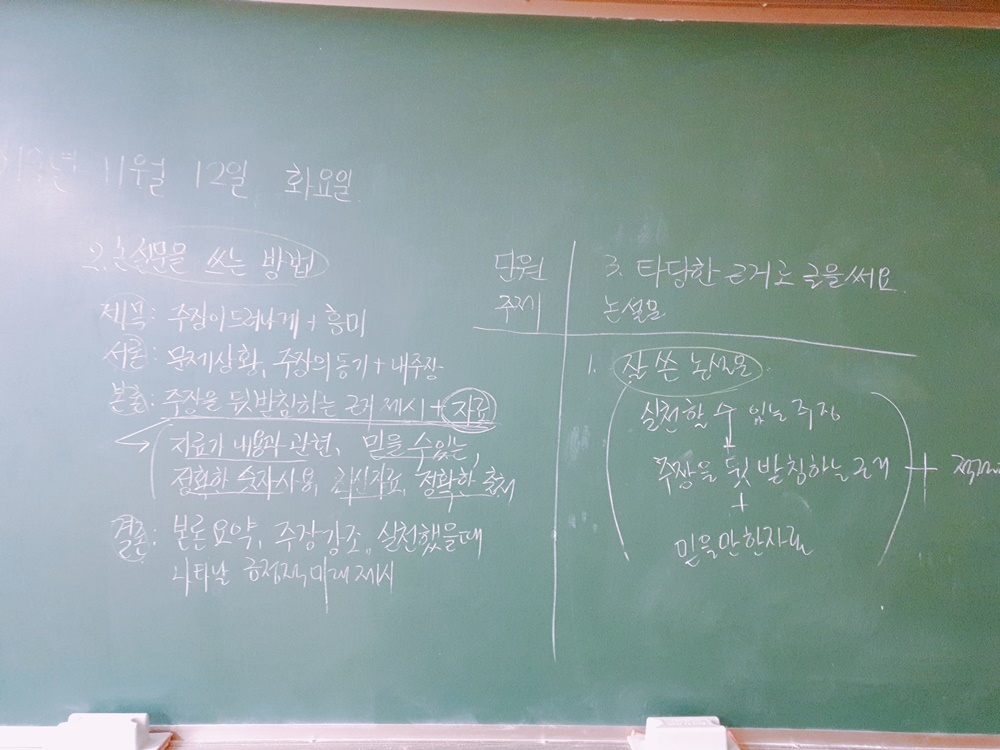 11월 12일 화요일
2. 논설문을 쓰는 방법
제목: 주장이 드러나게 + 흥미
서론: 문제상황, 주장의 동기 + 내 주장
본론: 주장을 뒷받침하는 근거 제시 + 자료
자료가 내용과 관련, 믿을 수 있는,
정확한 숫자사용, 최신자료, 정확한 출처
결론: 본론 요약, 주장강조, 실천했을때
나타날 긍정적 미래 제시
단원 3. 타당한 근거로 글을 써요.
주제 논설문
1. 잘 쓴 논설문
실천할 수 있는 주장
+
주장을 뒷받침하는 근거 +
+
믿을만한 자료